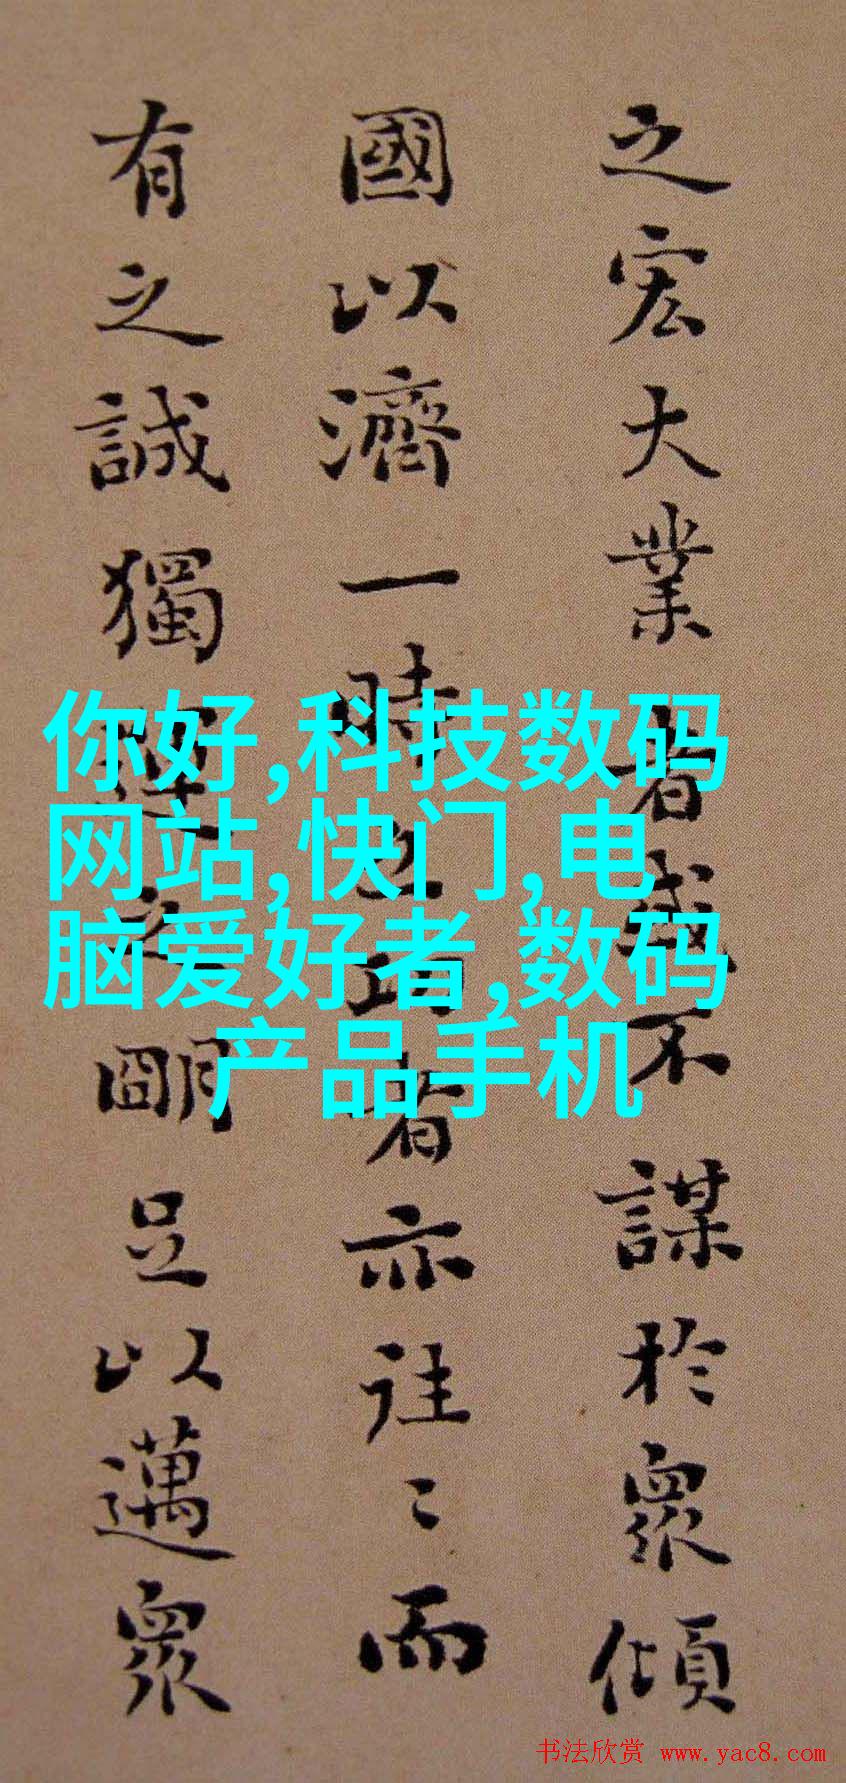 之宏大業者或不謀於眾傾
國以濟一時之功者亦往〻而
有之誠獨運之朙足以邁眾
你好,科技数码
网站,快门,电
脑爱好者,数码
产品手机
书法欣赏 www.yac8.com